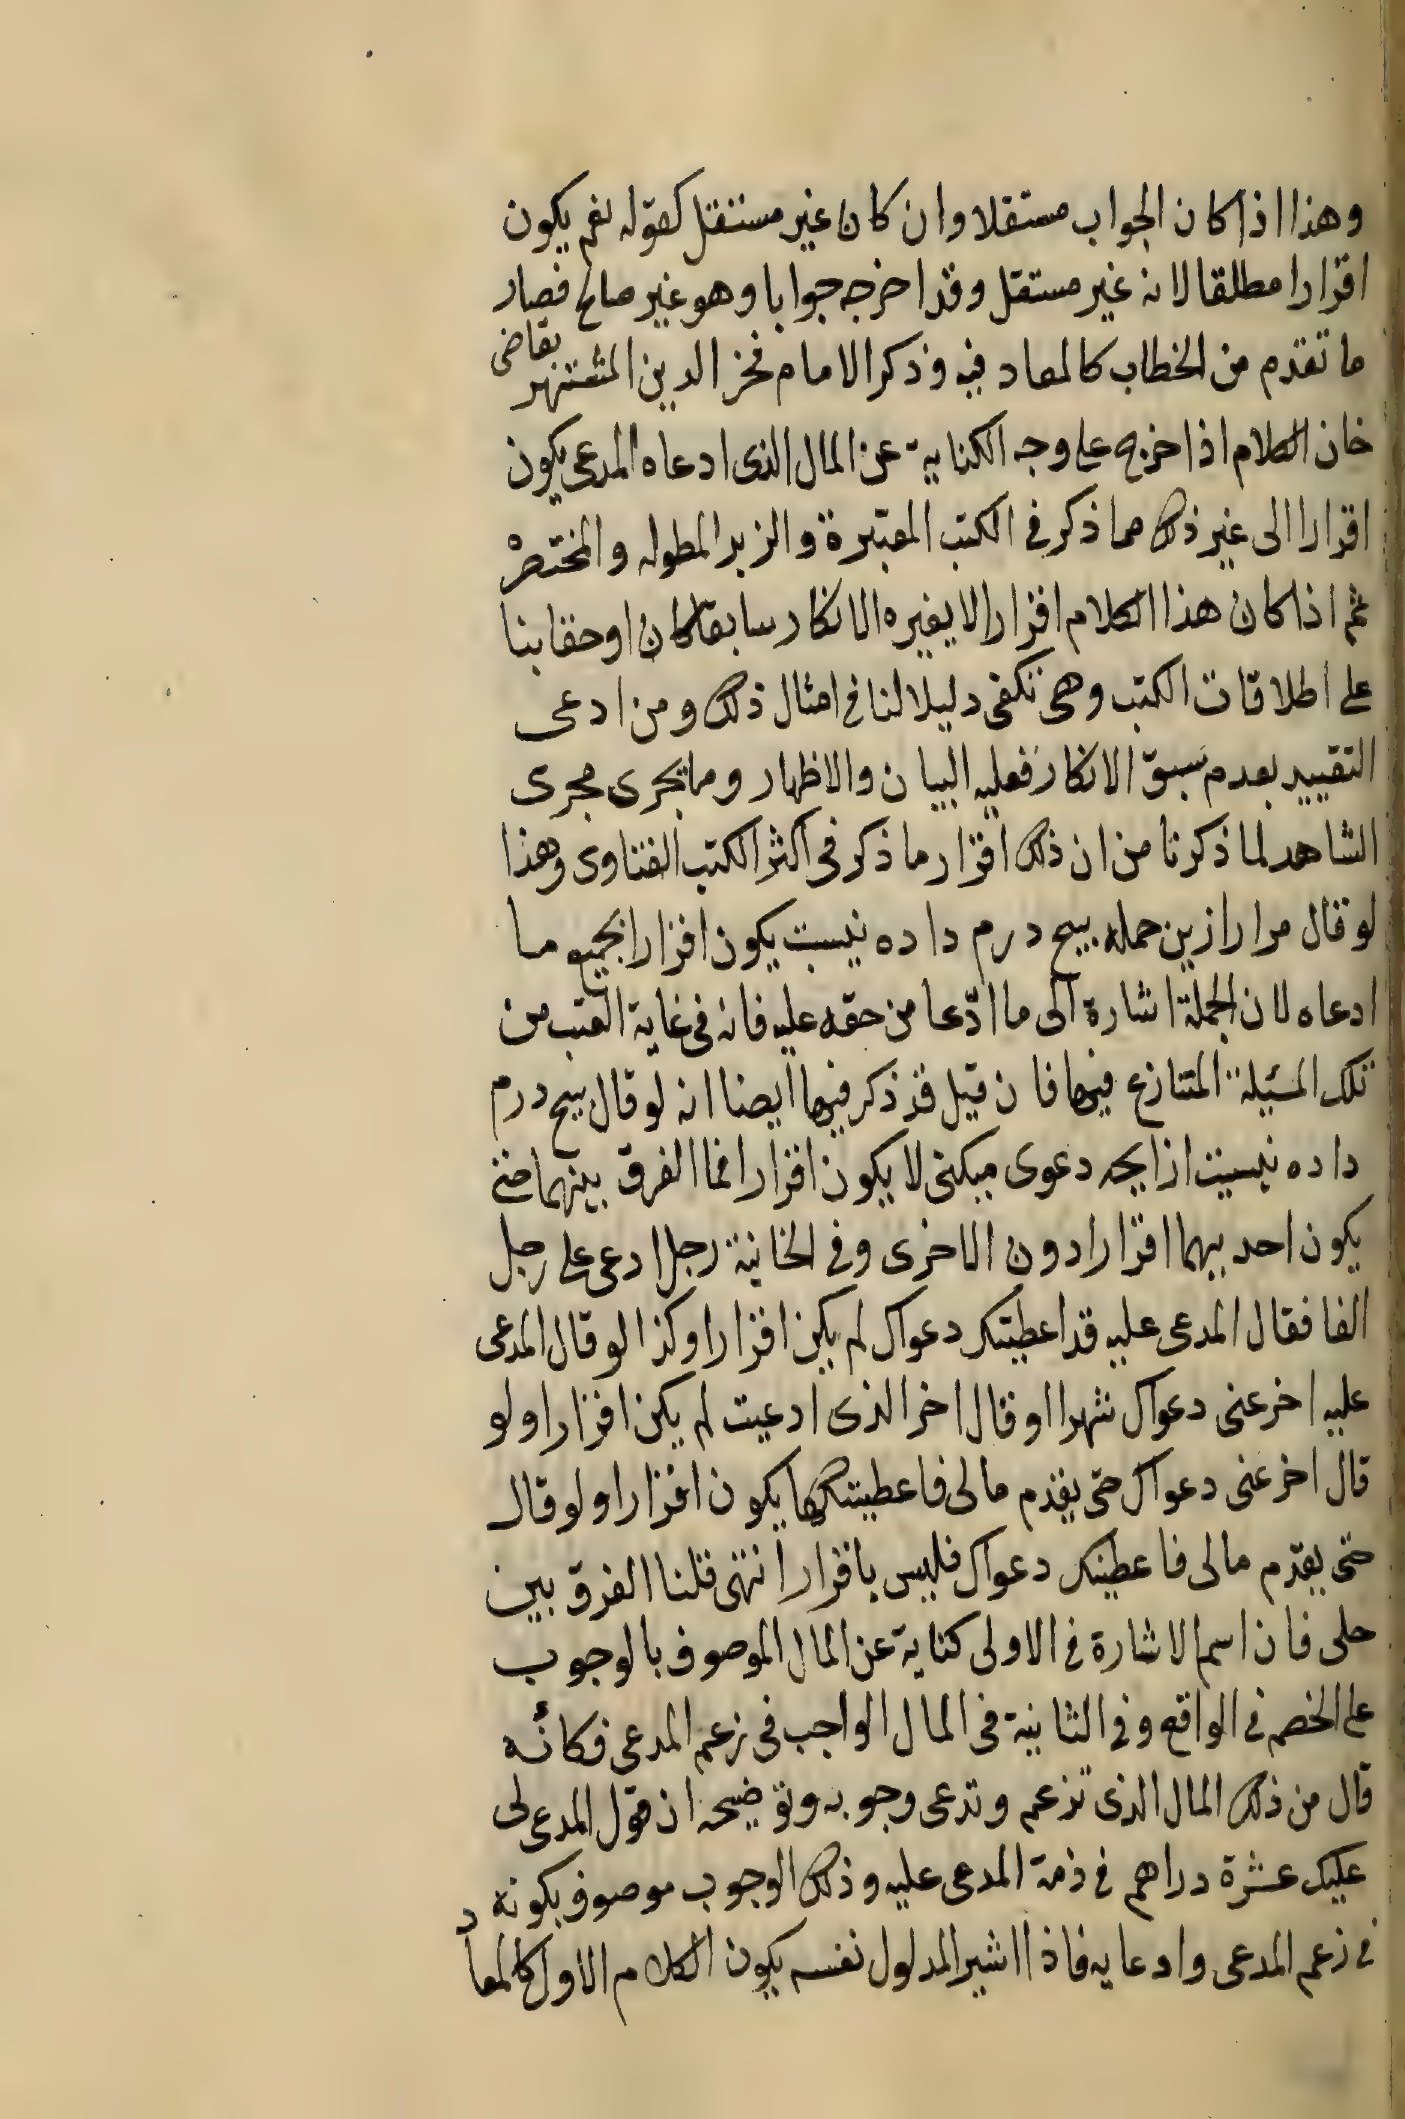 وهذا اذا كان الجواب مستقلا وان كان غير مستقل كقوله نعم يكون
اقرارا مطلقا لانه غير مستقل وقد اخرجه جوابا وهو غير صالح فصار
ما تقدم من الخطاب كالمعاد فيه وذكر الامام فخر الدين المشتهر بقاضى
خان الكلام اذا خرج على وجه الكناية عن المال الذى ادعاه المدعى يكون
اقرارا الى غير ذلك مما ذكر فى الكتب المعتبرة والزبر المطوله والمختصر
ثم اذا كان هذا الكلام اقرارا لا يغيره الانكار سابقا كان او حقا بنا
على اطلاقات الكتب وهى تكفى دليلا لنا فى امثال ذلك ومن ادعى
التقييد بعدم سبق الانكار فعليه البيان والاظهار ومما يجرى مجرى
الشاهد لما ذكرنا من ان ذلك اقرار ما ذكر فى اكثر الكتب الفتاوى وهذا
لو قال مرارا زين جمله پيج درم داده نيست يكون اقرارا بجميع ما
ادعاه لان الجملة اشارة الى ما ادّعا من حقه عليه فانه فى غاية القرب من
تلك المسئلة المتنازع فيها فان قيل قد ذكر فيها ايضا انه لو قال پيج درم
داده نيست از ايجه دعوى ميكنى لا يكون اقرارا فما الفرق بينهما حتى
يكون احديهما اقرارا دون الاخرى وفى الخانية رجل ادعى على رجل
الفا فقال المدعى عليه قد اعطيتك دعواك لم يكن اقرارا وكذا لو قال المدعى
عليه اخر عنى دعواك شهرا او قال اخر الذى ادعيت لم يكن اقرارا ولو
قال اخر عنى دعواك حتى يقدم مالى فاعطيتكها يكون اقرارا ولو قال
حتى يقدم مالى فاعطيتك دعواك فليس باقرار انتهى قلنا الفرق بين
جلى فان اسم الاشارة فى الاولى كناية عن المال الموصوف بالوجوب
على الخصم فى الواقع وفى الثانية فى المال الواجب فى زعم المدعى فكأنه
قال من ذلك المال الذى تزعم وتدعى وجوبه وتوضيحه ان قول المدعى لى
عليك عشرة دراهم فى ذمة المدعى عليه وذلك الوجوب موصوف بكونه
فى زعم المدعى وادعايه فاذا اشير المدلول نفسه يكون الكلام الاول كالمعاد